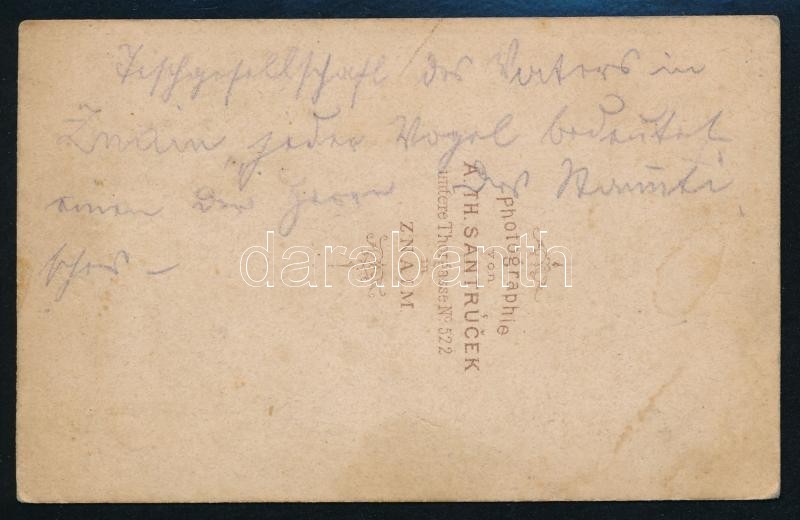 Tischgesellschaft des Vaters in
Znaim, jeder Vogel bedeutet
einen der Herrn des Stammti
sches –
Photographie
von
A. TH. SANTRŮČEK
untere Thorgasse No 522
in
ZNAIM
darabanth